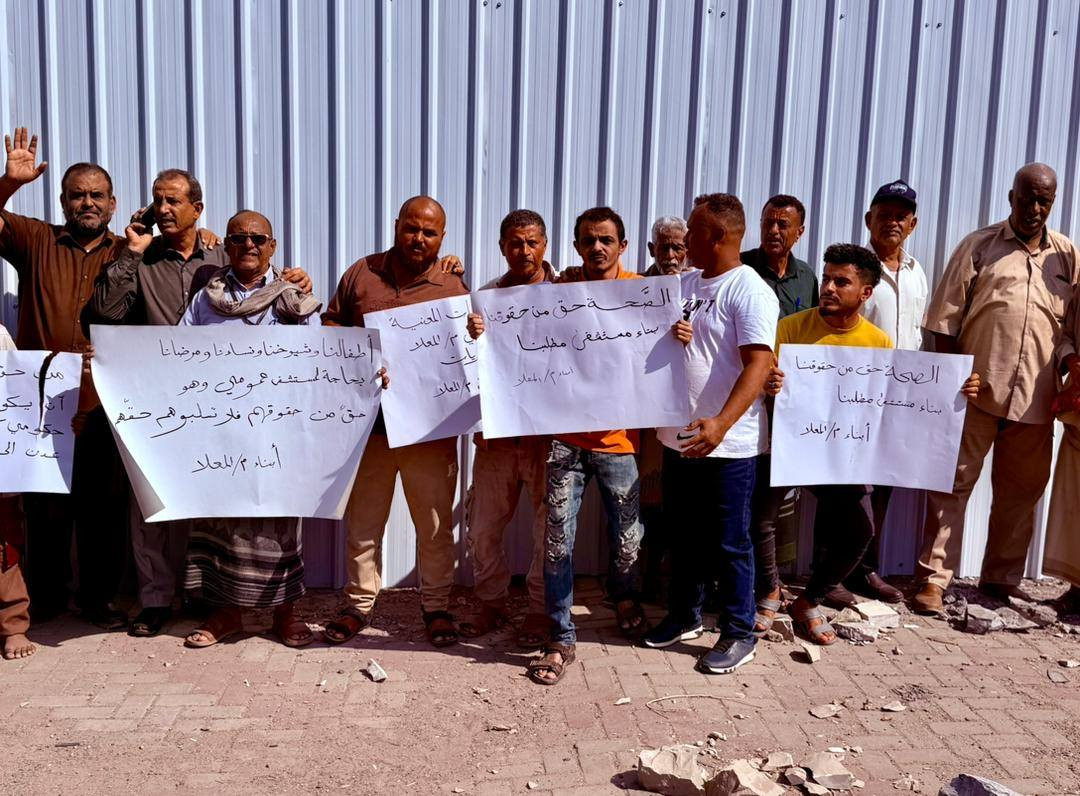 أطفالنا وشيوخنا ونساءنا ومرضانا
بحاجة لمستشفى عمومي وهو
حق من حقوقهم فلا تسلبوهم حقهم
أبناء م/المعلا
المعنية
م/المعلا
م/المعلا
الصّحة حق من حقوقنا
بناء مستشفى مطلبنا
أبناء م/المعلا
الصحة حق من حقوقنا
بناء مستشفى مطلبنا
أبناء م/المعلا
من
أن يكو
حكومي
عدن